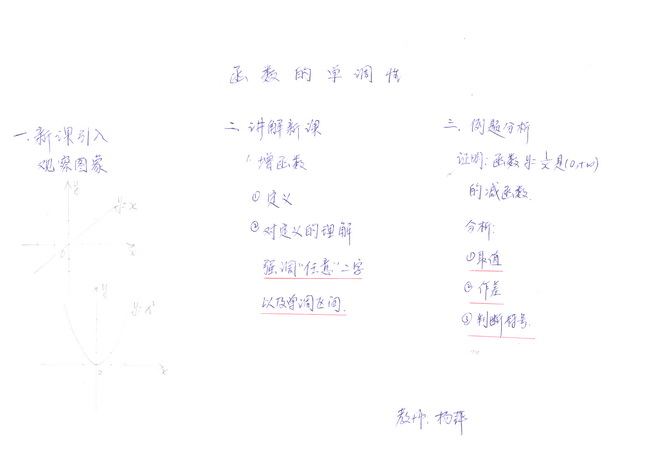 函数的单调性
一.新课引入
观察图象
y
y=x
0
x
y
y=x²
0
x
二.讲解新课
1.增函数
①定义
②对定义的理解
强调"任意"二字
以及单调区间.
三.例题分析
证明:函数y=1/x是(0,+∞)
的减函数.
分析:
①取值
②作差
③判断符号.
教师:杨萍